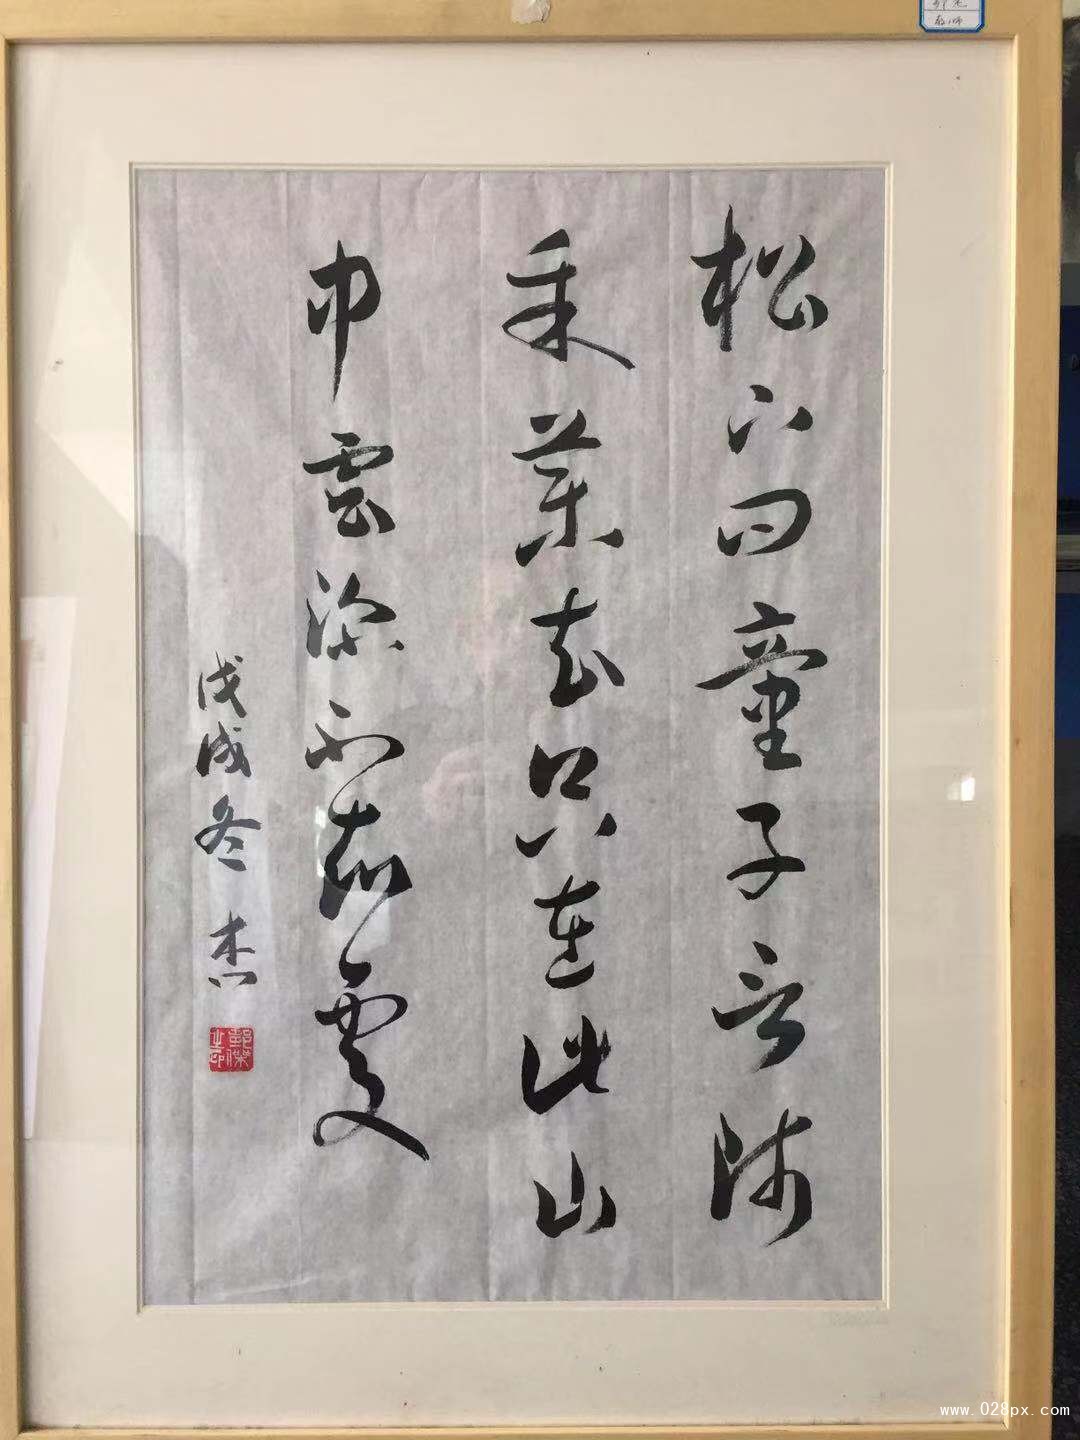 松下問童子言師
采藥去只在此山
中雲深不知處
戊戌冬 杰
www.028px.com